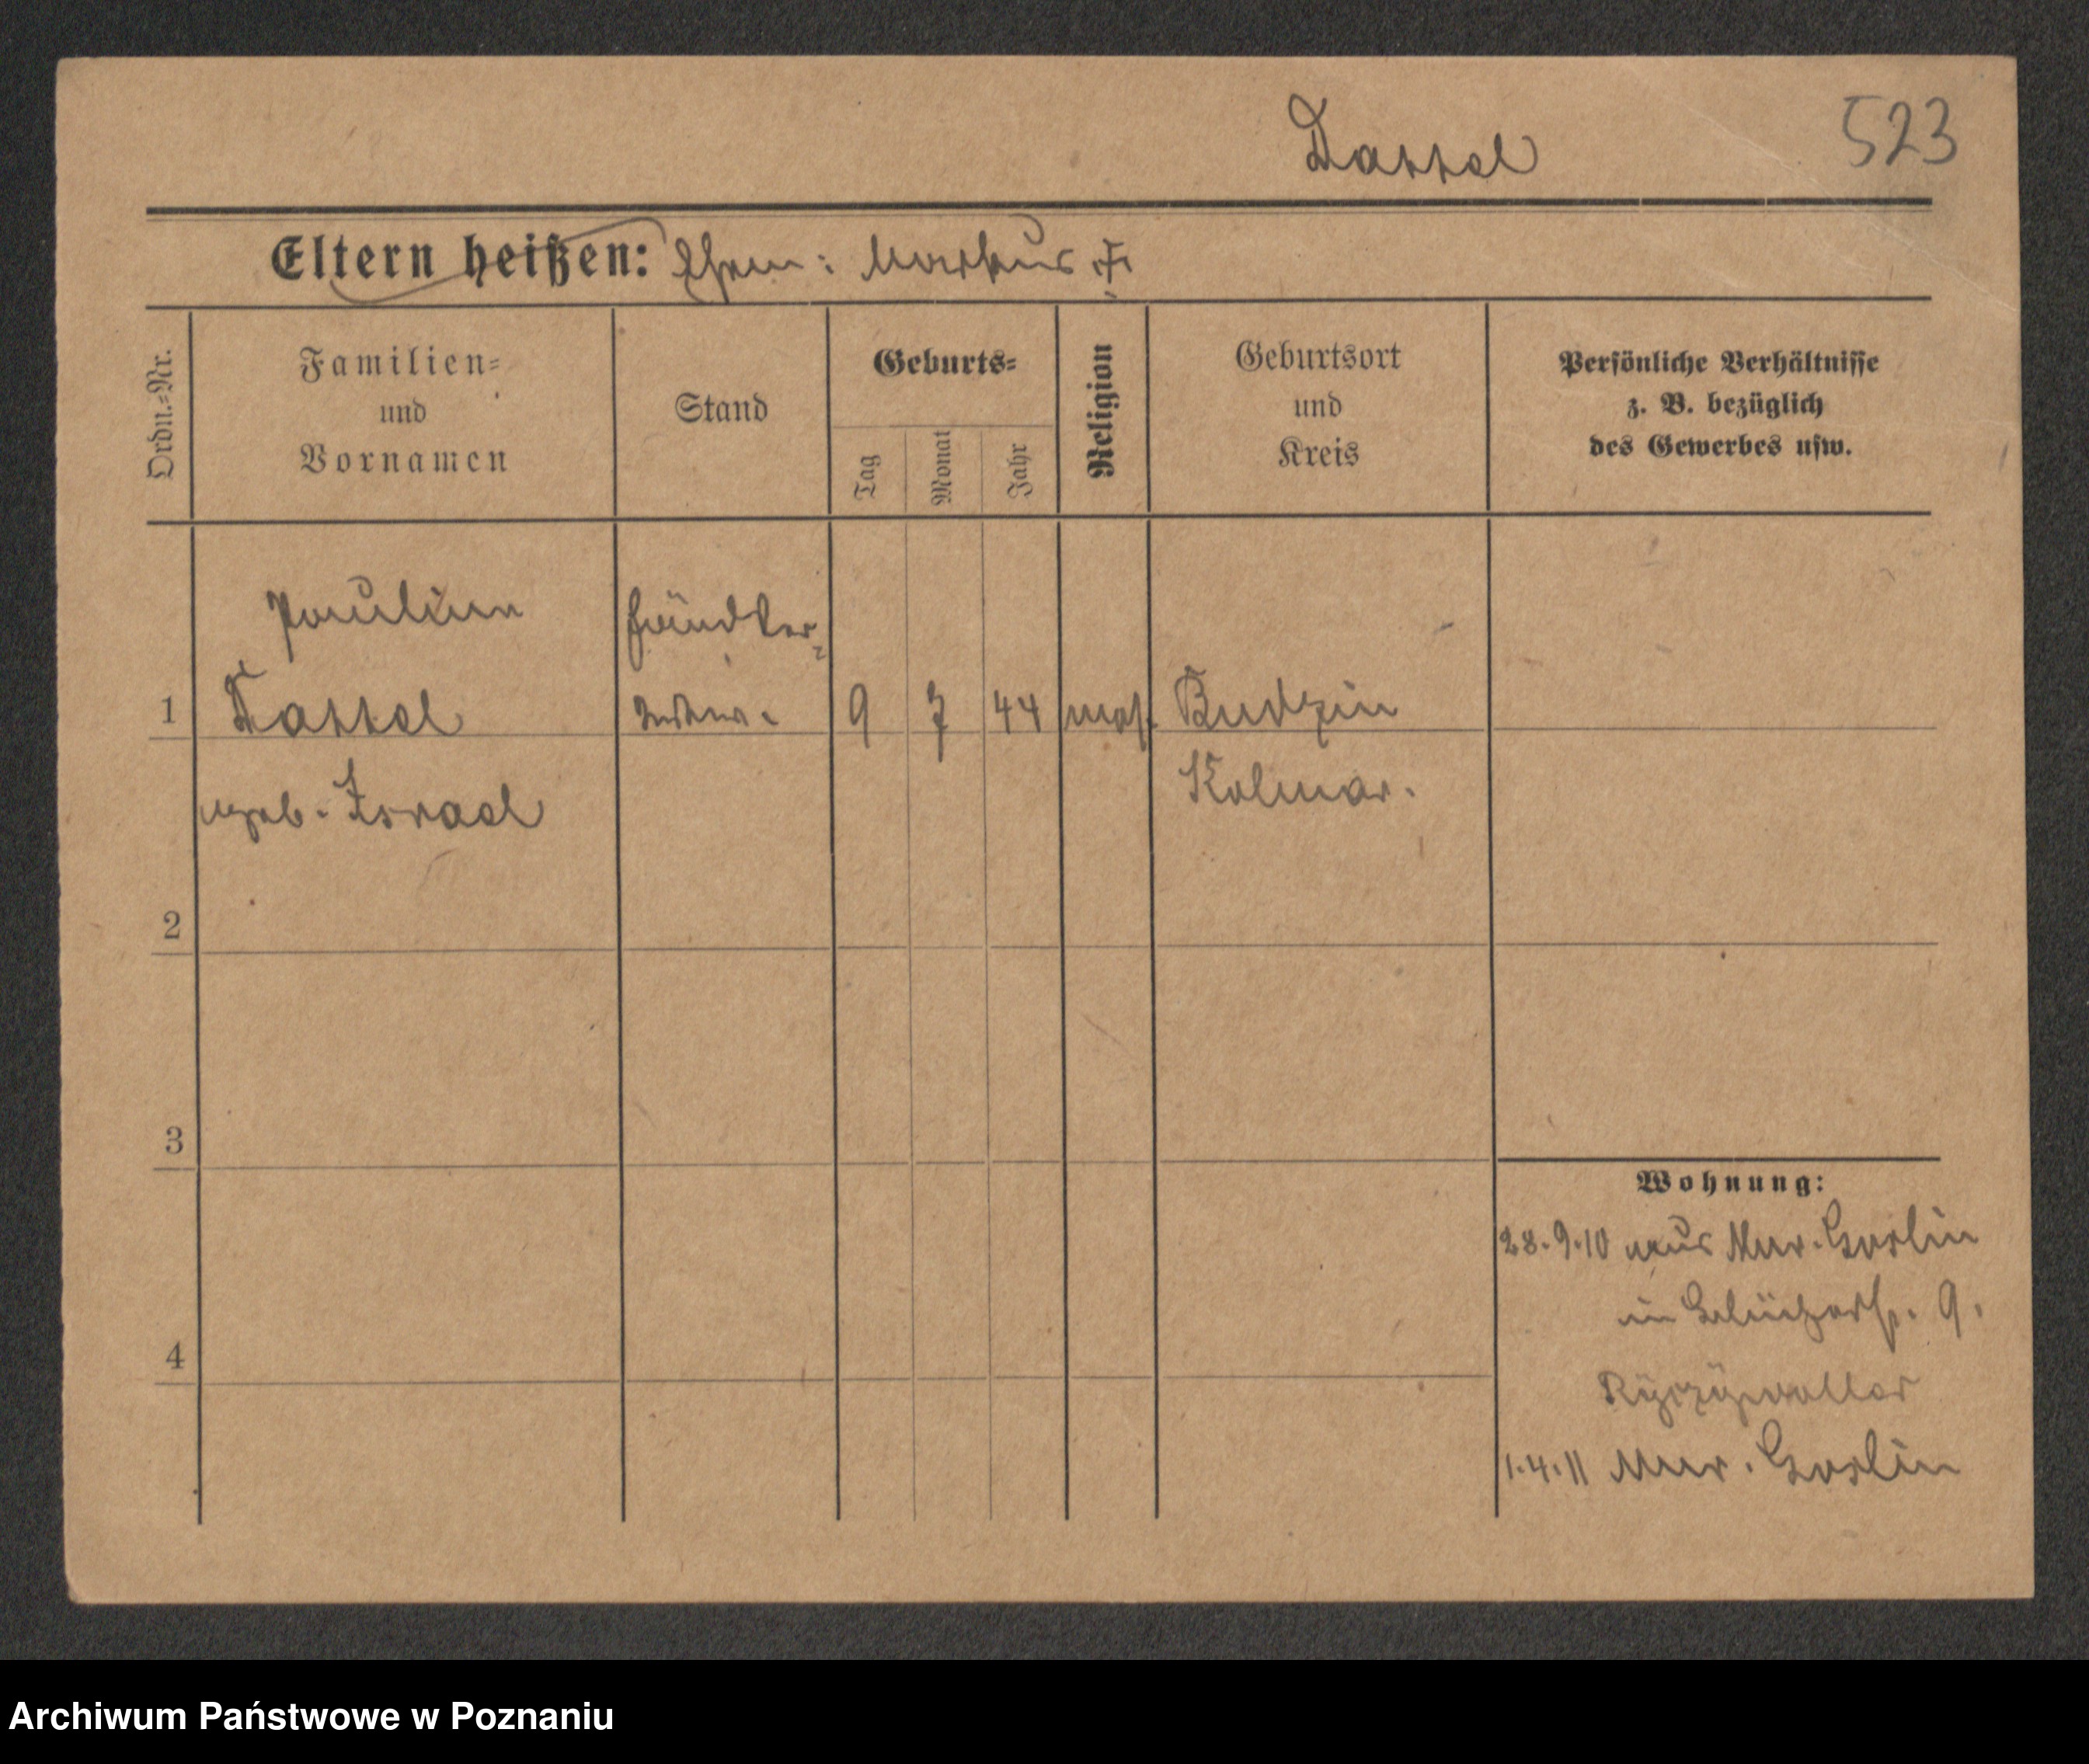 Dattel
523
Eltern heißen: Ehem: Markus †
Ordn.-Nr.
Familien-
und
Vornamen
Stand
Geburts-
Tag
Monat
Jahr
Religion
Geburtsort
und
Kreis
Persönliche Verhältnisse
z. B. bezüglich
des Gewerbes usw.
Pauline
Händler
1 Dattel 9 7 44 mos. Budzin
geb. Israel
Kolmar.
2
3
4
Wohnung:
28.9.10 aus Mur. Goslin
in Blücherstr. 9.
1.4.11 Mur. Goslin
Archiwum Państwowe w Poznaniu